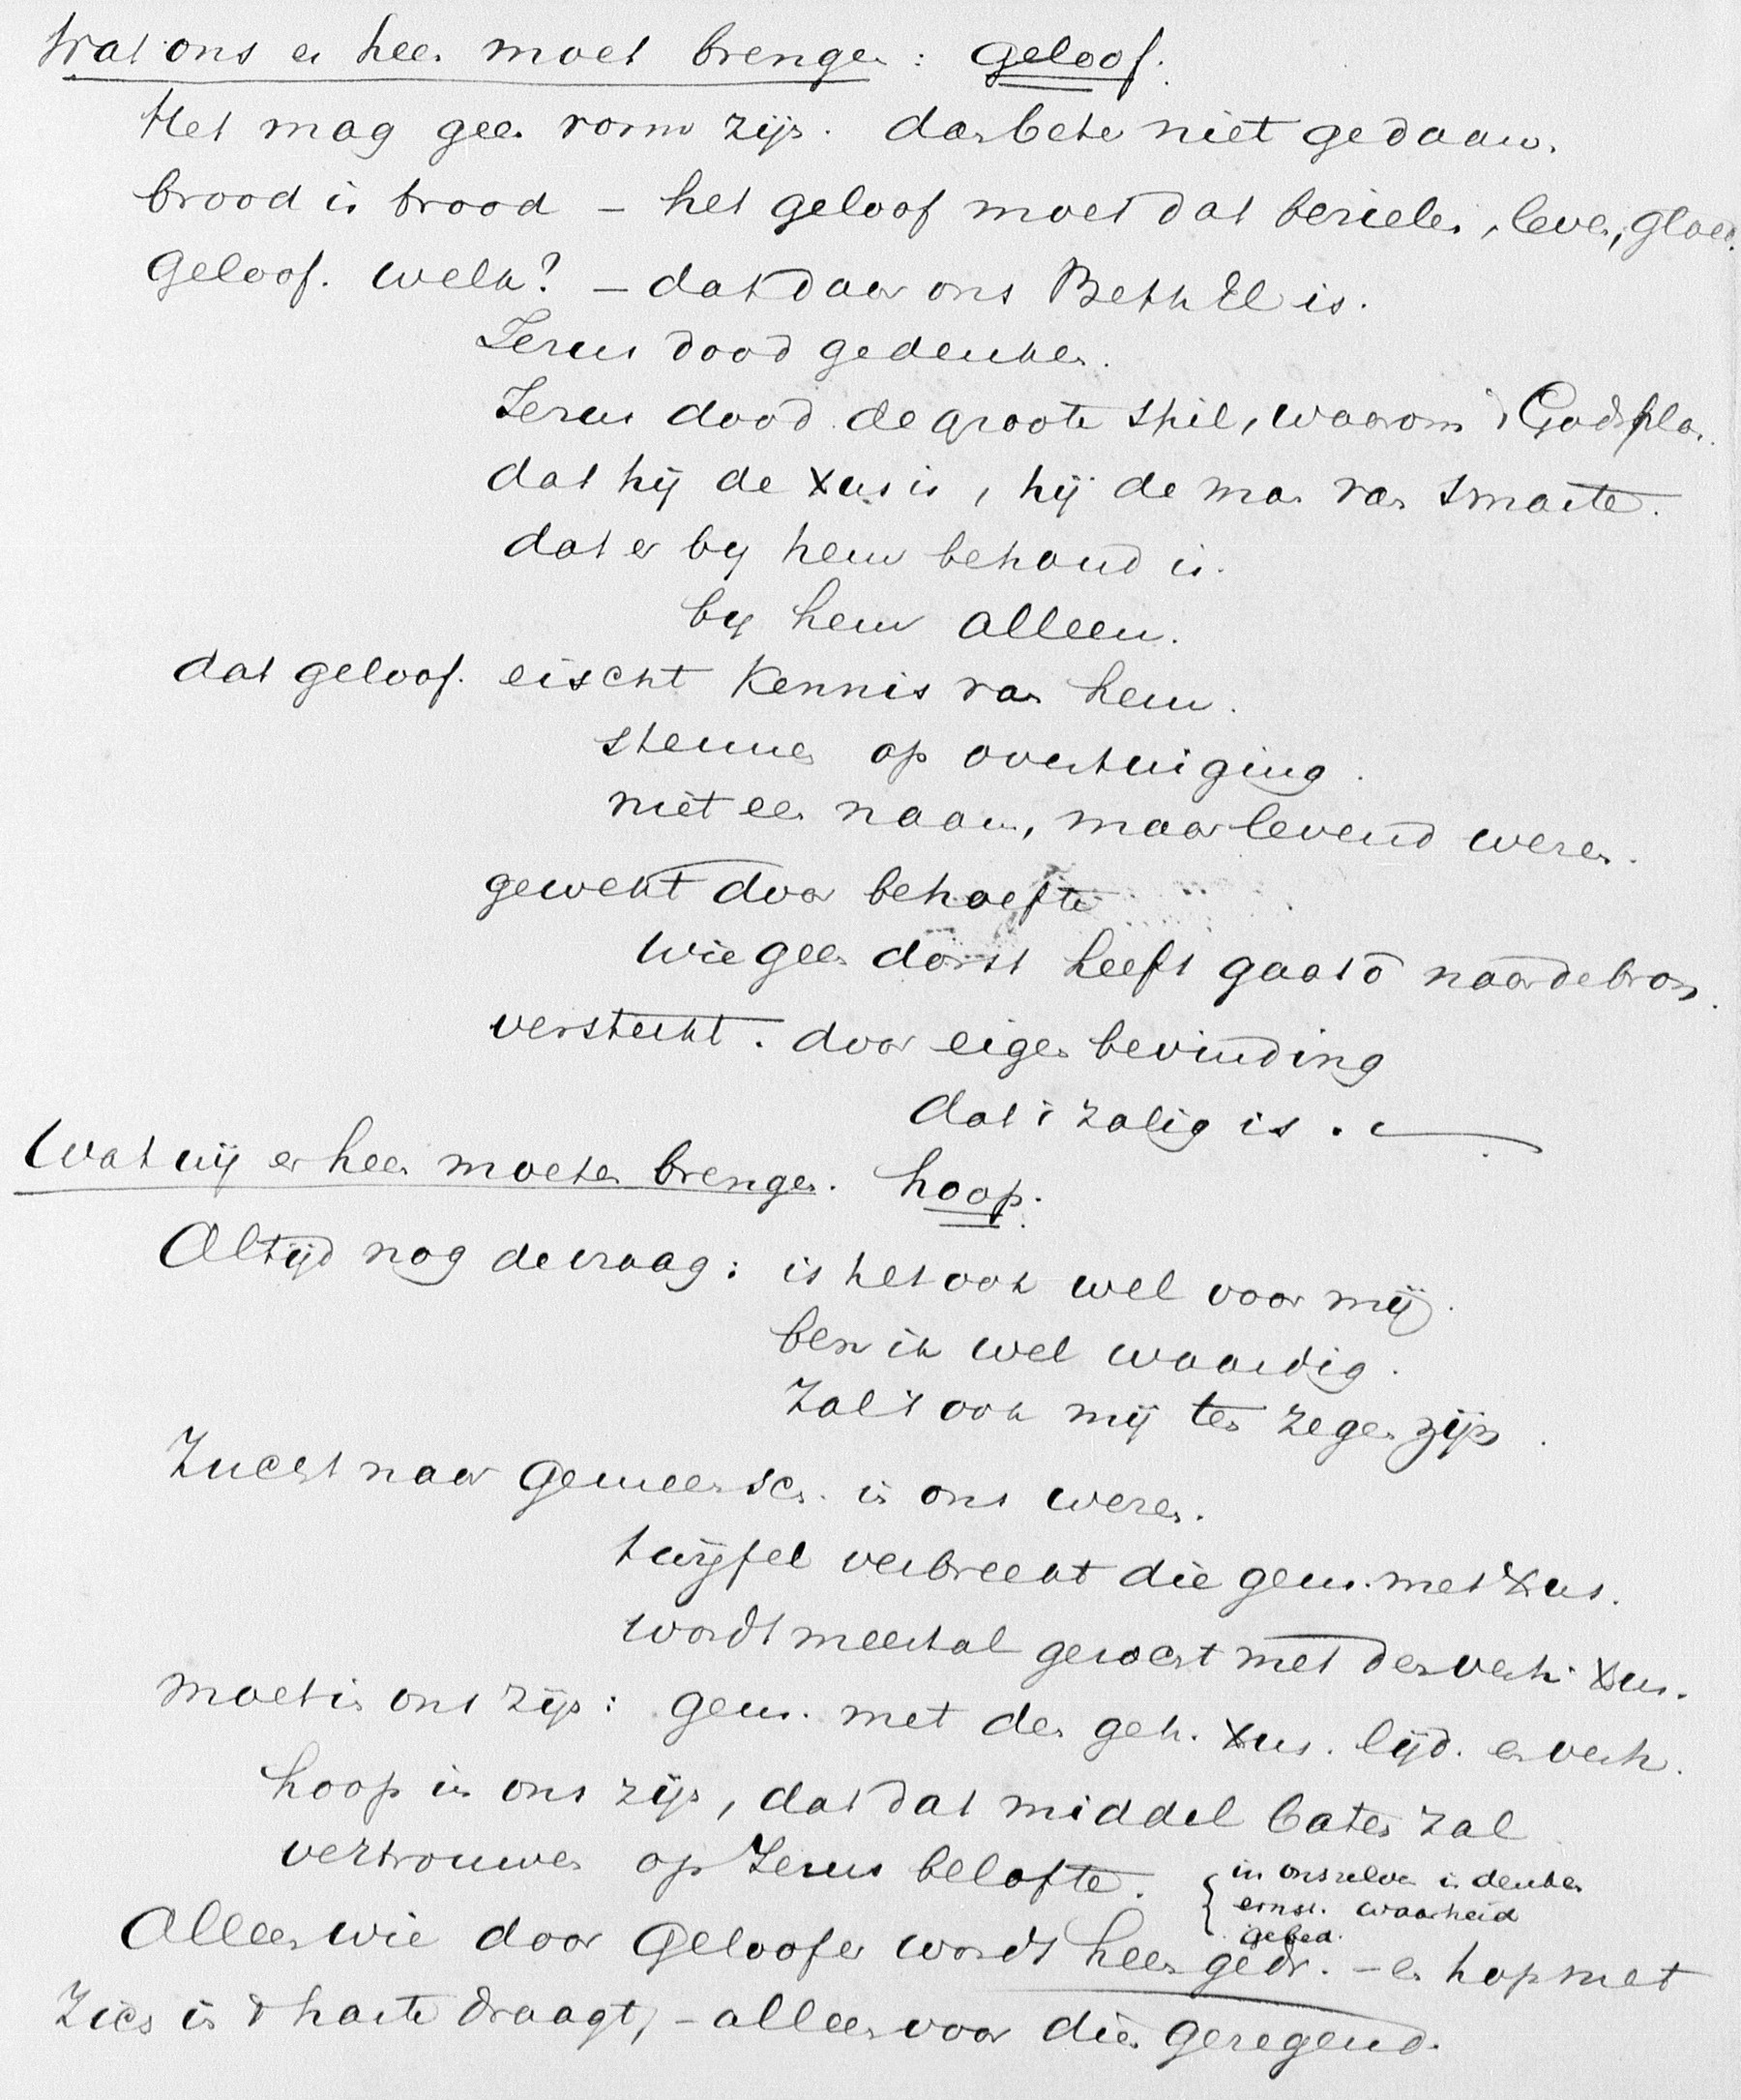 Wat ons er heen moet brengen : geloof.
Het mag geen vorm zijn. dan beter niet gedaan.
brood is brood – het geloof moet dat bezielen, leven, gloed.
Geloof. welk? – dat daar ons Beth El is.
Jezus dood gedenken.
Jezus dood de groote spil, waarom Gods plan.
dat hij de Xus is, hij de man van smarte.
dat er by hem behoud is.
by hem alleen.
dat geloof. eischt kennis van hem.
steunen op overtuiging.
niet een naam, maar levend wezen.
gewekt door behoefte
wie geen dorst heeft gaat ō naar de bron.
versterkt. door eigen bevinding
dat i zalig is.
Wat wij er heen moeten brengen. hoop.
Altijd nog de vraag : is het ook wel voor mij.
ben ik wel waardig.
Zal 't ook mij ten zegen zijn.
Zucht naar gemeensch. in ons wezen.
twijfel verbreekt die gem. met Xus.
wordt meestal gezocht met den verh. Xus.
moet in ons zijn : gem. met den geh. Xus. lijd. en verh.
hoop in ons zijn, dat dat middel baten zal
vertrouwen op Jezus belofte.
in onszelven in denken
ernst. waarheid
gebed.
Alleen wie door Geloof er wordt heen gedr. – en hop met
zich in 't harte draagt, – alleen voor die gezegend.